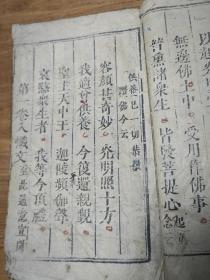 無邊佛土中 受用作佛事
普熏諸衆生 皆發菩提心
供養已一切恭敬
讚佛
容顏甚奇妙 光明照十方
我適曾供養 今復還親覲
聖主天中王 迦陵頻伽聲
哀愍衆生者 我等今頂禮
第 卷入懺文至此